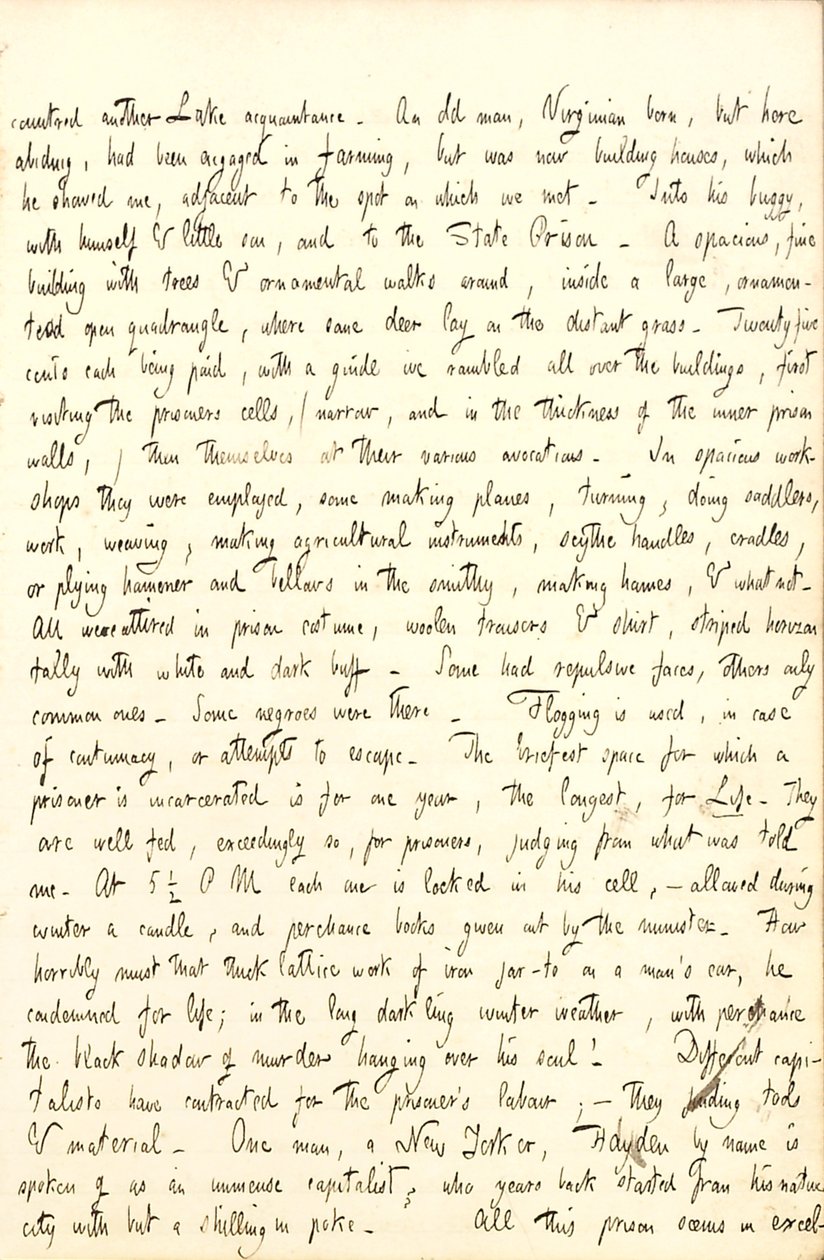 countred another Lake acquaintance. An old man, Virginian born, but here
abiding, had been engaged in farming, but was now building houses, which
he showed me, adjacent to the spot on which we met. Into his buggy,
with himself & little son, and to the State Prison. A spacious, fine
building with trees & ornamental walks around, inside a large, ornamen-
ted open quadrangle, where some deer lay on the distant grass. Twenty five
cents each being paid, with a guide we rambled all over the buildings, first
visiting the prisoners cells, (narrow, and in the thickness of the inner prison
walls,) then themselves at their various avocations. In spacious work-
shops they were employed, some making planes, turning, doing saddlers,
work, weaving, making agricultural instruments, scythe handles, cradles,
or plying hammer and bellows in the smithy, making hames, & what not.
All were attired in prison costume, woolen trousers & shirt, striped horizon
tally with white and dark buff. Some had repulsive faces, others only
common ones. Some negroes were there. Flogging is used, in case
of contumacy, or attempts to escape. The briefest space for which a
prisoner is incarcerated is for one year, the longest, for Life. They
are well fed, exceedingly so, for prisoners, judging from what was told
me. At 5 1/2 P M each one is locked in his cell, — allowed during
winter a candle, and perchance books given out by the minister. How
horribly must that thick lattice work of iron jar-to on a man's ear, he
condemned for life; in the long darkling winter weather, with perchance
the black shadow of murder hanging over his soul! Different capi-
talists have contracted for the prisoner's labour; — they finding tools
& material. One man, a New Yorker, Hayden by name is
spoken of as an immense capitalist, who years back started from his native
city with but a shilling in poke. All this prison seems in excel-